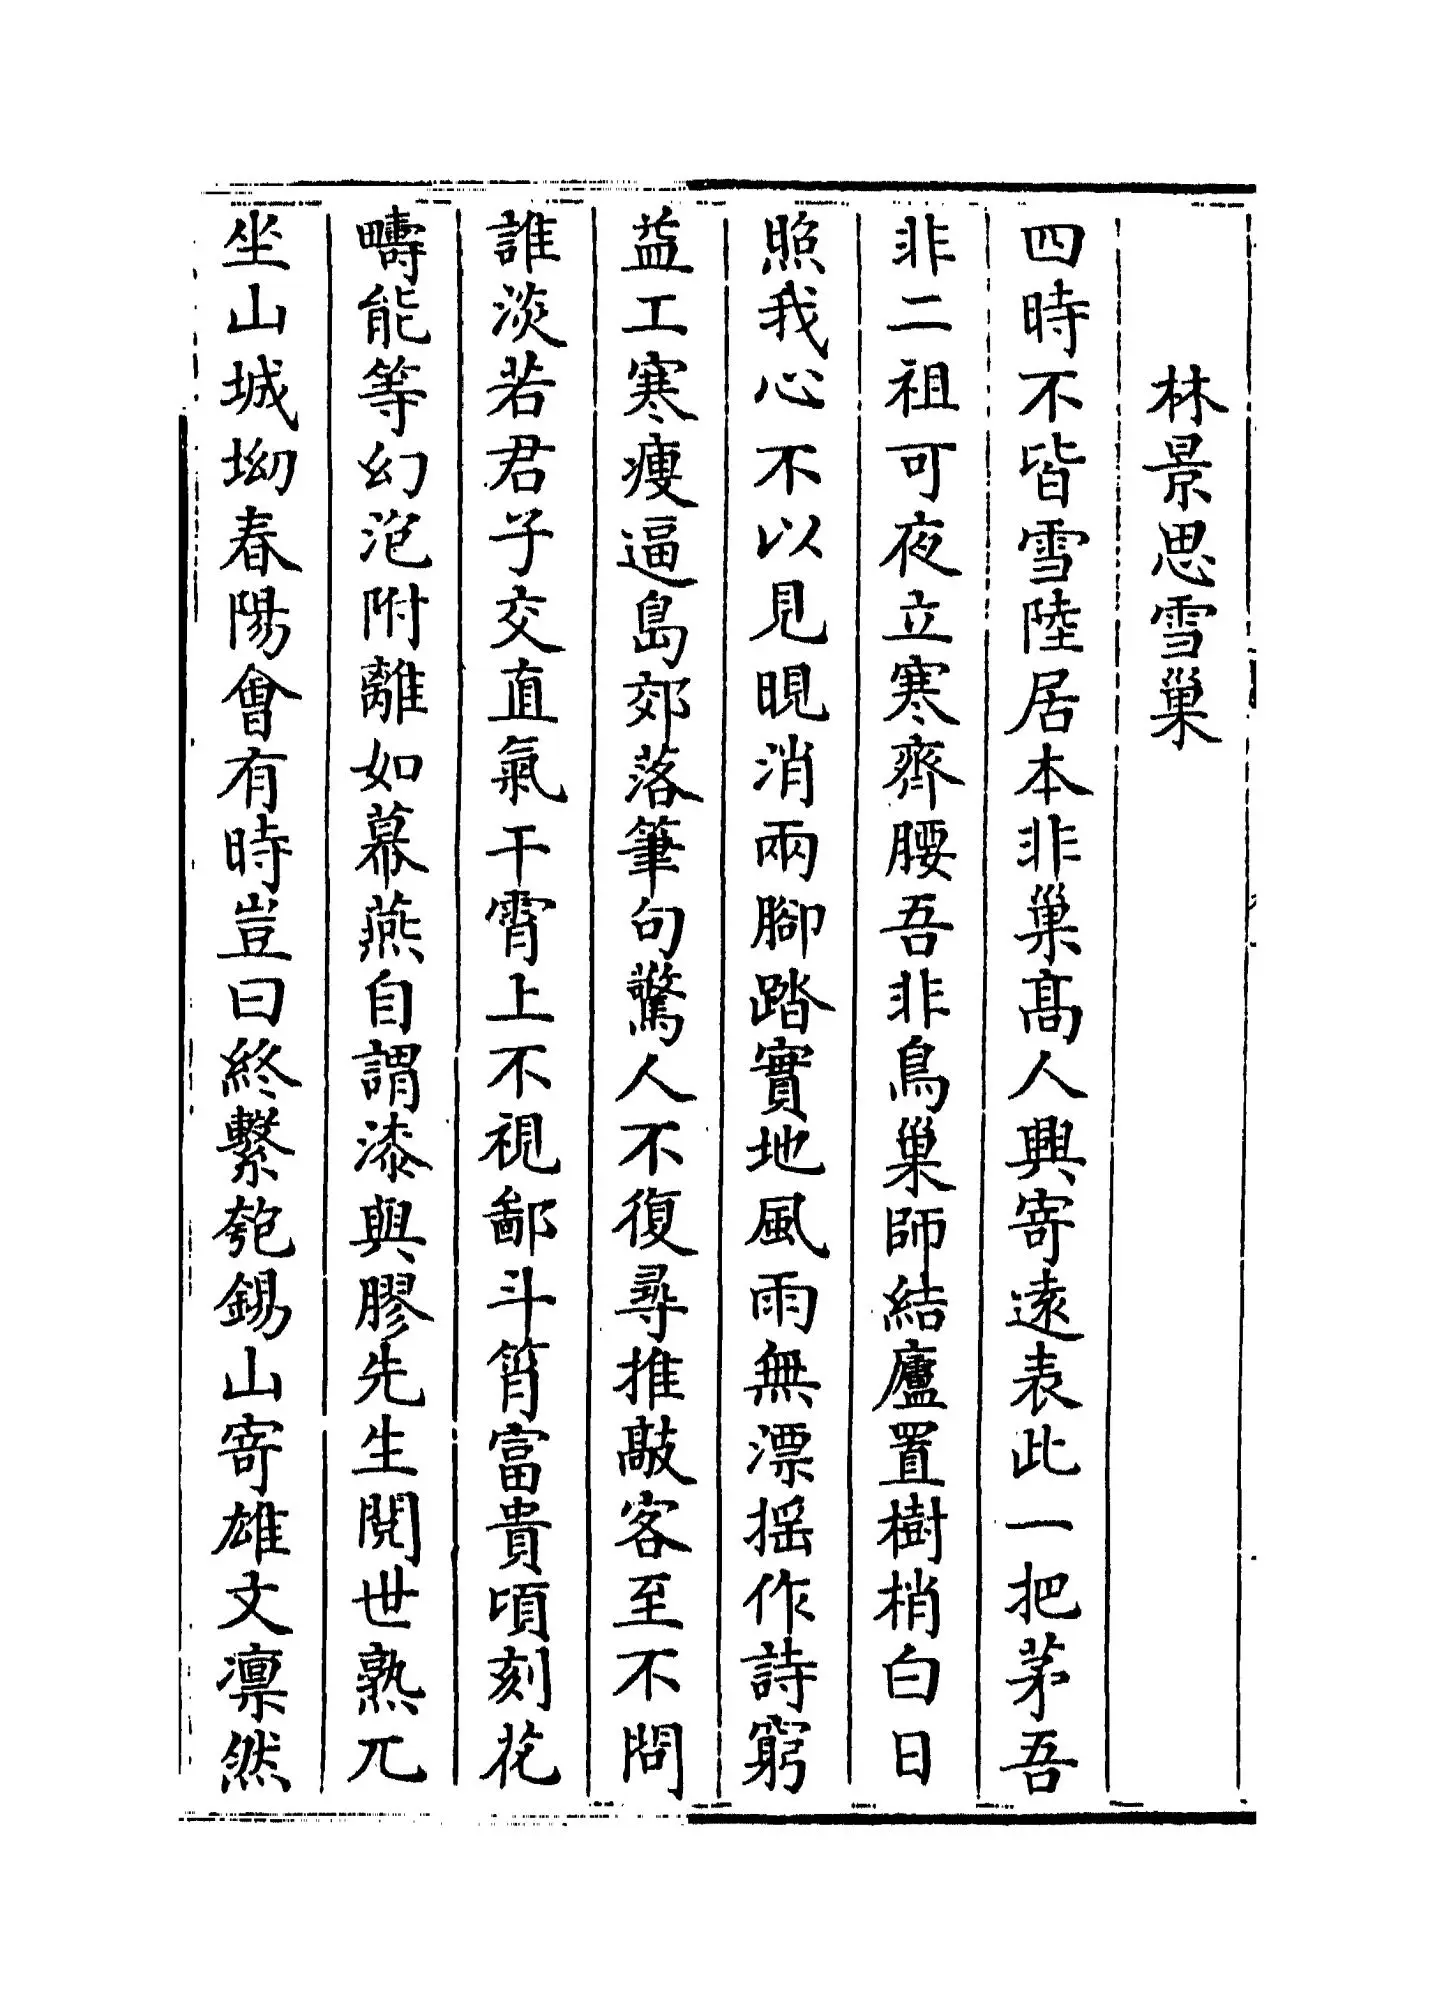 林景思雪巢
四時不皆雪陸居本非巢髙人興寄逺表此一把茅吾
非二祖可夜立寒齊腰吾非鳥巢師結廬置樹梢白日
照我心不以見晛消兩腳踏實地風雨無漂揺作詩窮
益工寒瘦逼島郊落筆句驚人不復尋推敲客至不問
誰淡若君子交直氣干霄上不視鄙斗筲富貴頃刻花
疇能等幻泡附離如幕燕自謂漆與膠先生閱世熟兀
坐山城坳春陽會有時豈曰終繫匏錫山寄雄文凜然